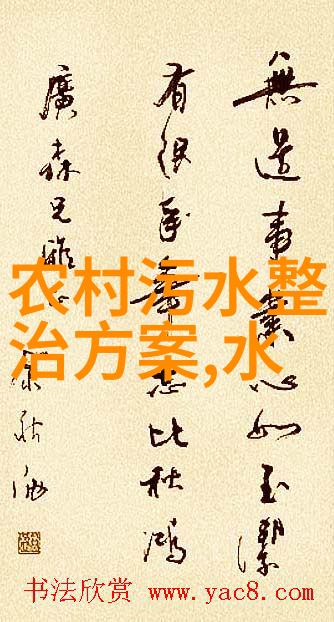 無邊事業心如玉潔
有限年華志比秋鴻
廣森兄雅
农村污水整
治方案,水
书法欣赏 www.yac8.com